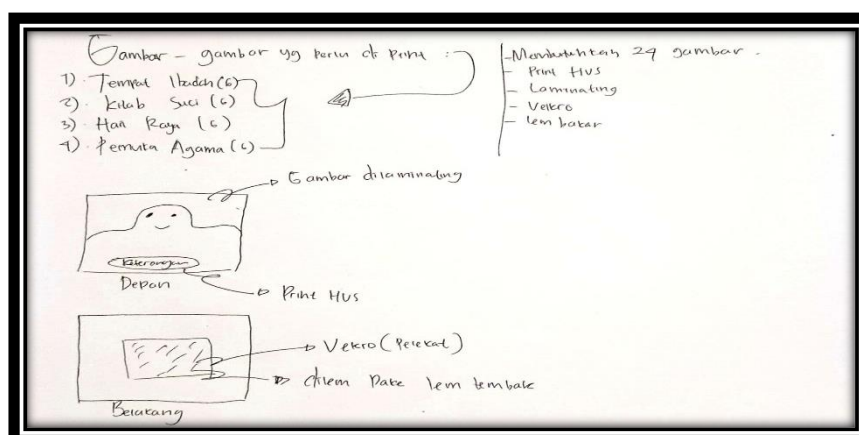 Gambar - gambar yg perlu di Print :
1). Tempat Ibadah (6)
2). Kitab Suci (6)
3) Hari Raya (6)
4) Pemuka Agama (6)
- Membutuhkan 24 gambar.
- Print HVS
- Laminating
- Velkro
- lem bakar
Gambar dilaminating
Keterangan
Depan
Print HVS
Vekro (Perekat)
dilem Pake lem tembak
Belakang